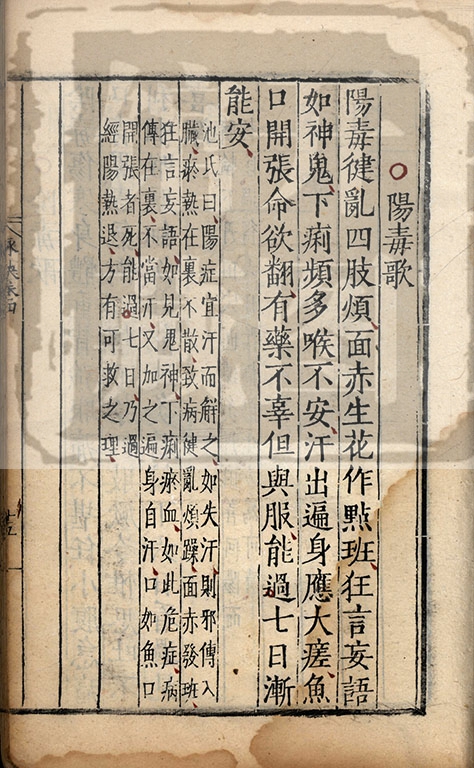 ○陽毒歌
陽毒健亂四肢煩、面赤生花作點班、狂言妄語
如神鬼、下痢頻多喉不安、汗出遍身應大瘥、魚
口開張命欲翻、有藥不辜但與服、能過七日漸
能安、
池氏曰、陽症宜汗而解之、如失汗、則邪傳入
臟、瘀熱在裏不散、致病健亂煩躁、面赤發班、
狂言妄語、如見鬼神、下痢瘀血、如此危症、病
傳在裏、不當汗、又加之遍身自汗、口如魚口
開張者死、能過七日、乃過
經陽熱退、方有可救之理、